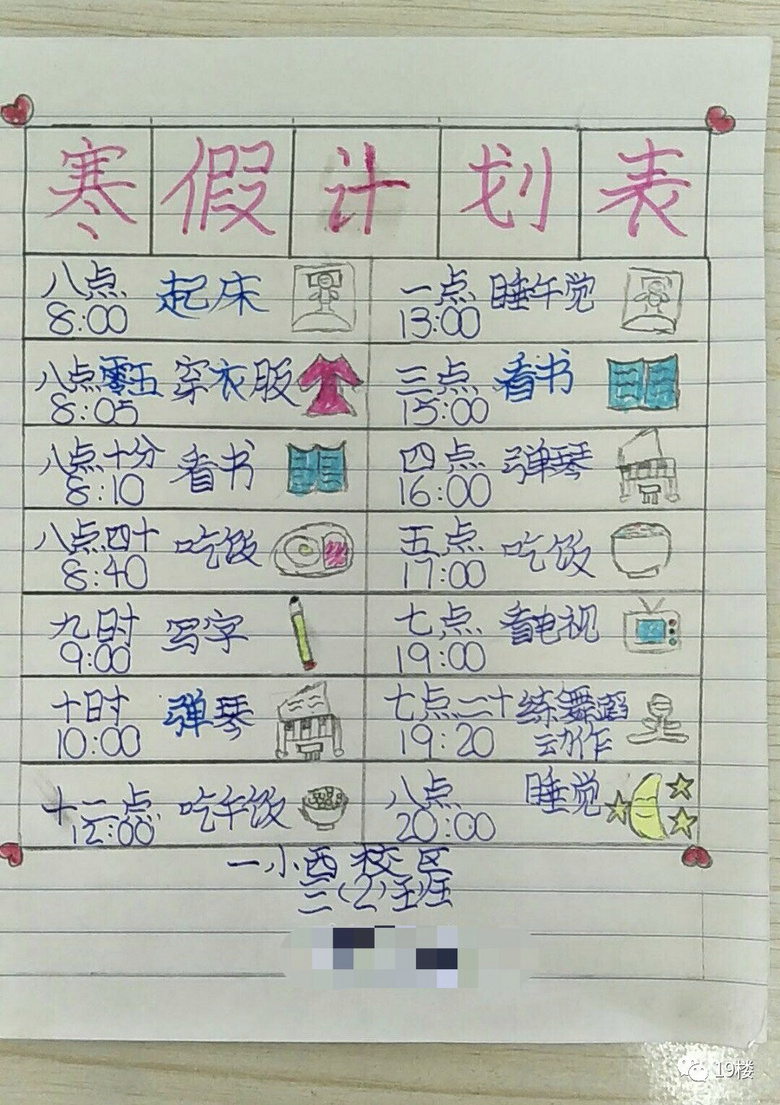 寒假计划表
八点 起床
8:00
一点 睡午觉
13:00
八点零五 穿衣服
8:05
三点 看书
15:00
八点十分 看书
8:10
四点 弹琴
16:00
八点四十 吃饭
8:40
五点 吃饭
17:00
九时 写字
9:00
七点 看电视
19:00
十时 弹琴
10:00
七点二十 练舞蹈
19:20 动作
十二点 吃午饭
12:00
八点 睡觉
20:00
一小西校区
三(2)班
19楼